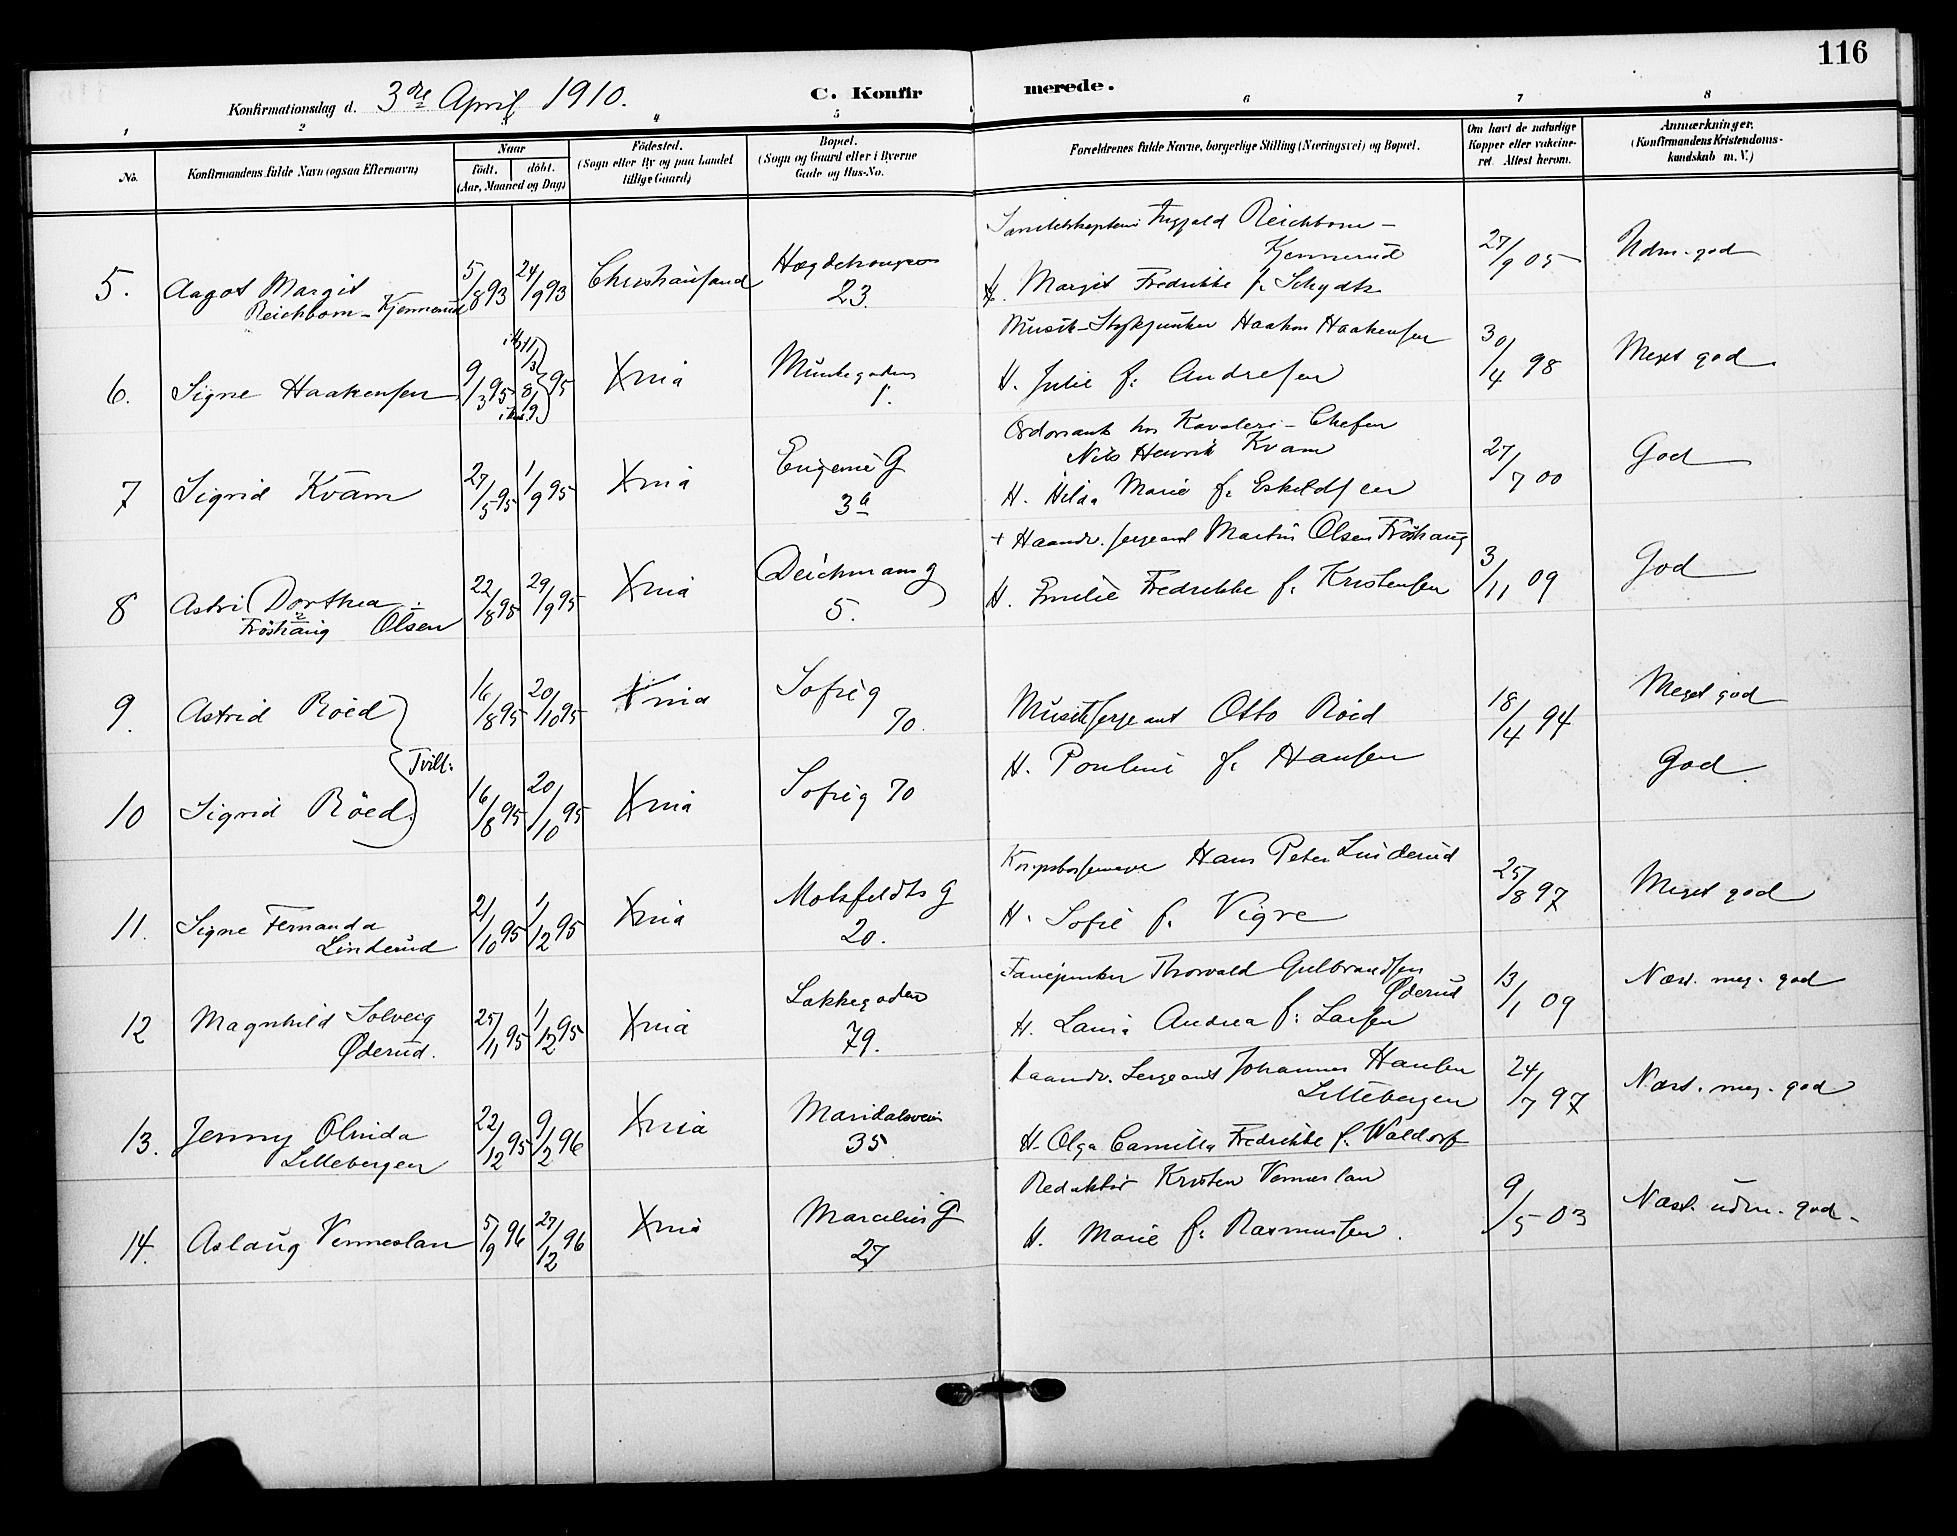 116
Konfirmationsdag d. 3dre April 1910. C. Konfirmerede.
1 2 3 4 5 6 7 8
No. Konfirmandens fulde Navn (ogsaa Efternavn) Naar født. døbt. (Aar, Maaned og Dag) Fødested. (Sogn eller By og paa Landet tillige Gaard) Bopæl. (Sogn og Gaard eller i Byerne Gade og Hus-No. Forældrenes fulde Navne, borgerlige Stilling (Næringsvei) og Bopæl. Om havt de naturlige Kopper eller vaccineret. Attest herom. Anmærkninger. (Konfirmandens Kristendomskundskab m. V.)
5. Aagot Margit Reichborn-Kjennerud 5/8 93 24/9 93 Christiansand 23. Ingjald Reichborn-Kjennerud H. Margit Fredrikke f. 27/9 05 Udm. god
6. Signe Haakensen 9/3 95 11/3 8/9 95 Xnia Muntegaden 1. Haakon Haakensen H. Julie f. Andresen 30/4 98 Meget god
7 Sigrid Kvam 27/5 95 1/9 95 Xnia Eugenie G 3a Nils Henrik Kvam H. Hilda Marie f. Eskildsen 27/7 00 God
8 Astri Dorthea Frøshaug Olsen 22/8 95 29/9 95 Xnia Deichmansg 5. + Haandv. sergeant Martin Olsen Frøshaug H. Emilie Fredrikke f. Kristensen 3/11 09 God
9. Astrid Röed 16/8 95 20/10 95 Xnia Sofieg 70. Musiksergeant Otto Röed H. Pouline f. Hansen 18/4 94 Meget god
Tvill:
10 Sigrid Röed. 16/8 95 20/10 95 Xnia Sofieg 70 God.
11. Signe Fernanda Linderud 2/10 95 1/12 95 Xnia Motzfeldts G 20. Hans Peter Linderud H. Sofie f. Vigre 25/8 97 Meget god
12 Magnhild Solveig Øderud. 25/11 95 1/12 95 Xnia Lakkegaden 79. Fanejunker Thorvald Gulbrandsen Øderud H. Andrea f. Larsen 13/1 09 Næst. meg. god
13. Jenny Olvida Lillebergen 22/12 95 9/2 96 Xnia Maridalsveien 35 Haandv. Sergeant Johannes Hansen Lillebergen H. Olga Camilla Fredrikke f. Waldorf 24/7 97 Næst. meg. god
14. Aslaug Venneslan 5/9 96 27/12 96 Xnia Marcelius G 27 Redaktör Kristen Venneslan H. Marie f. Rasmussen. 9/5 03 Næst. udm. god.